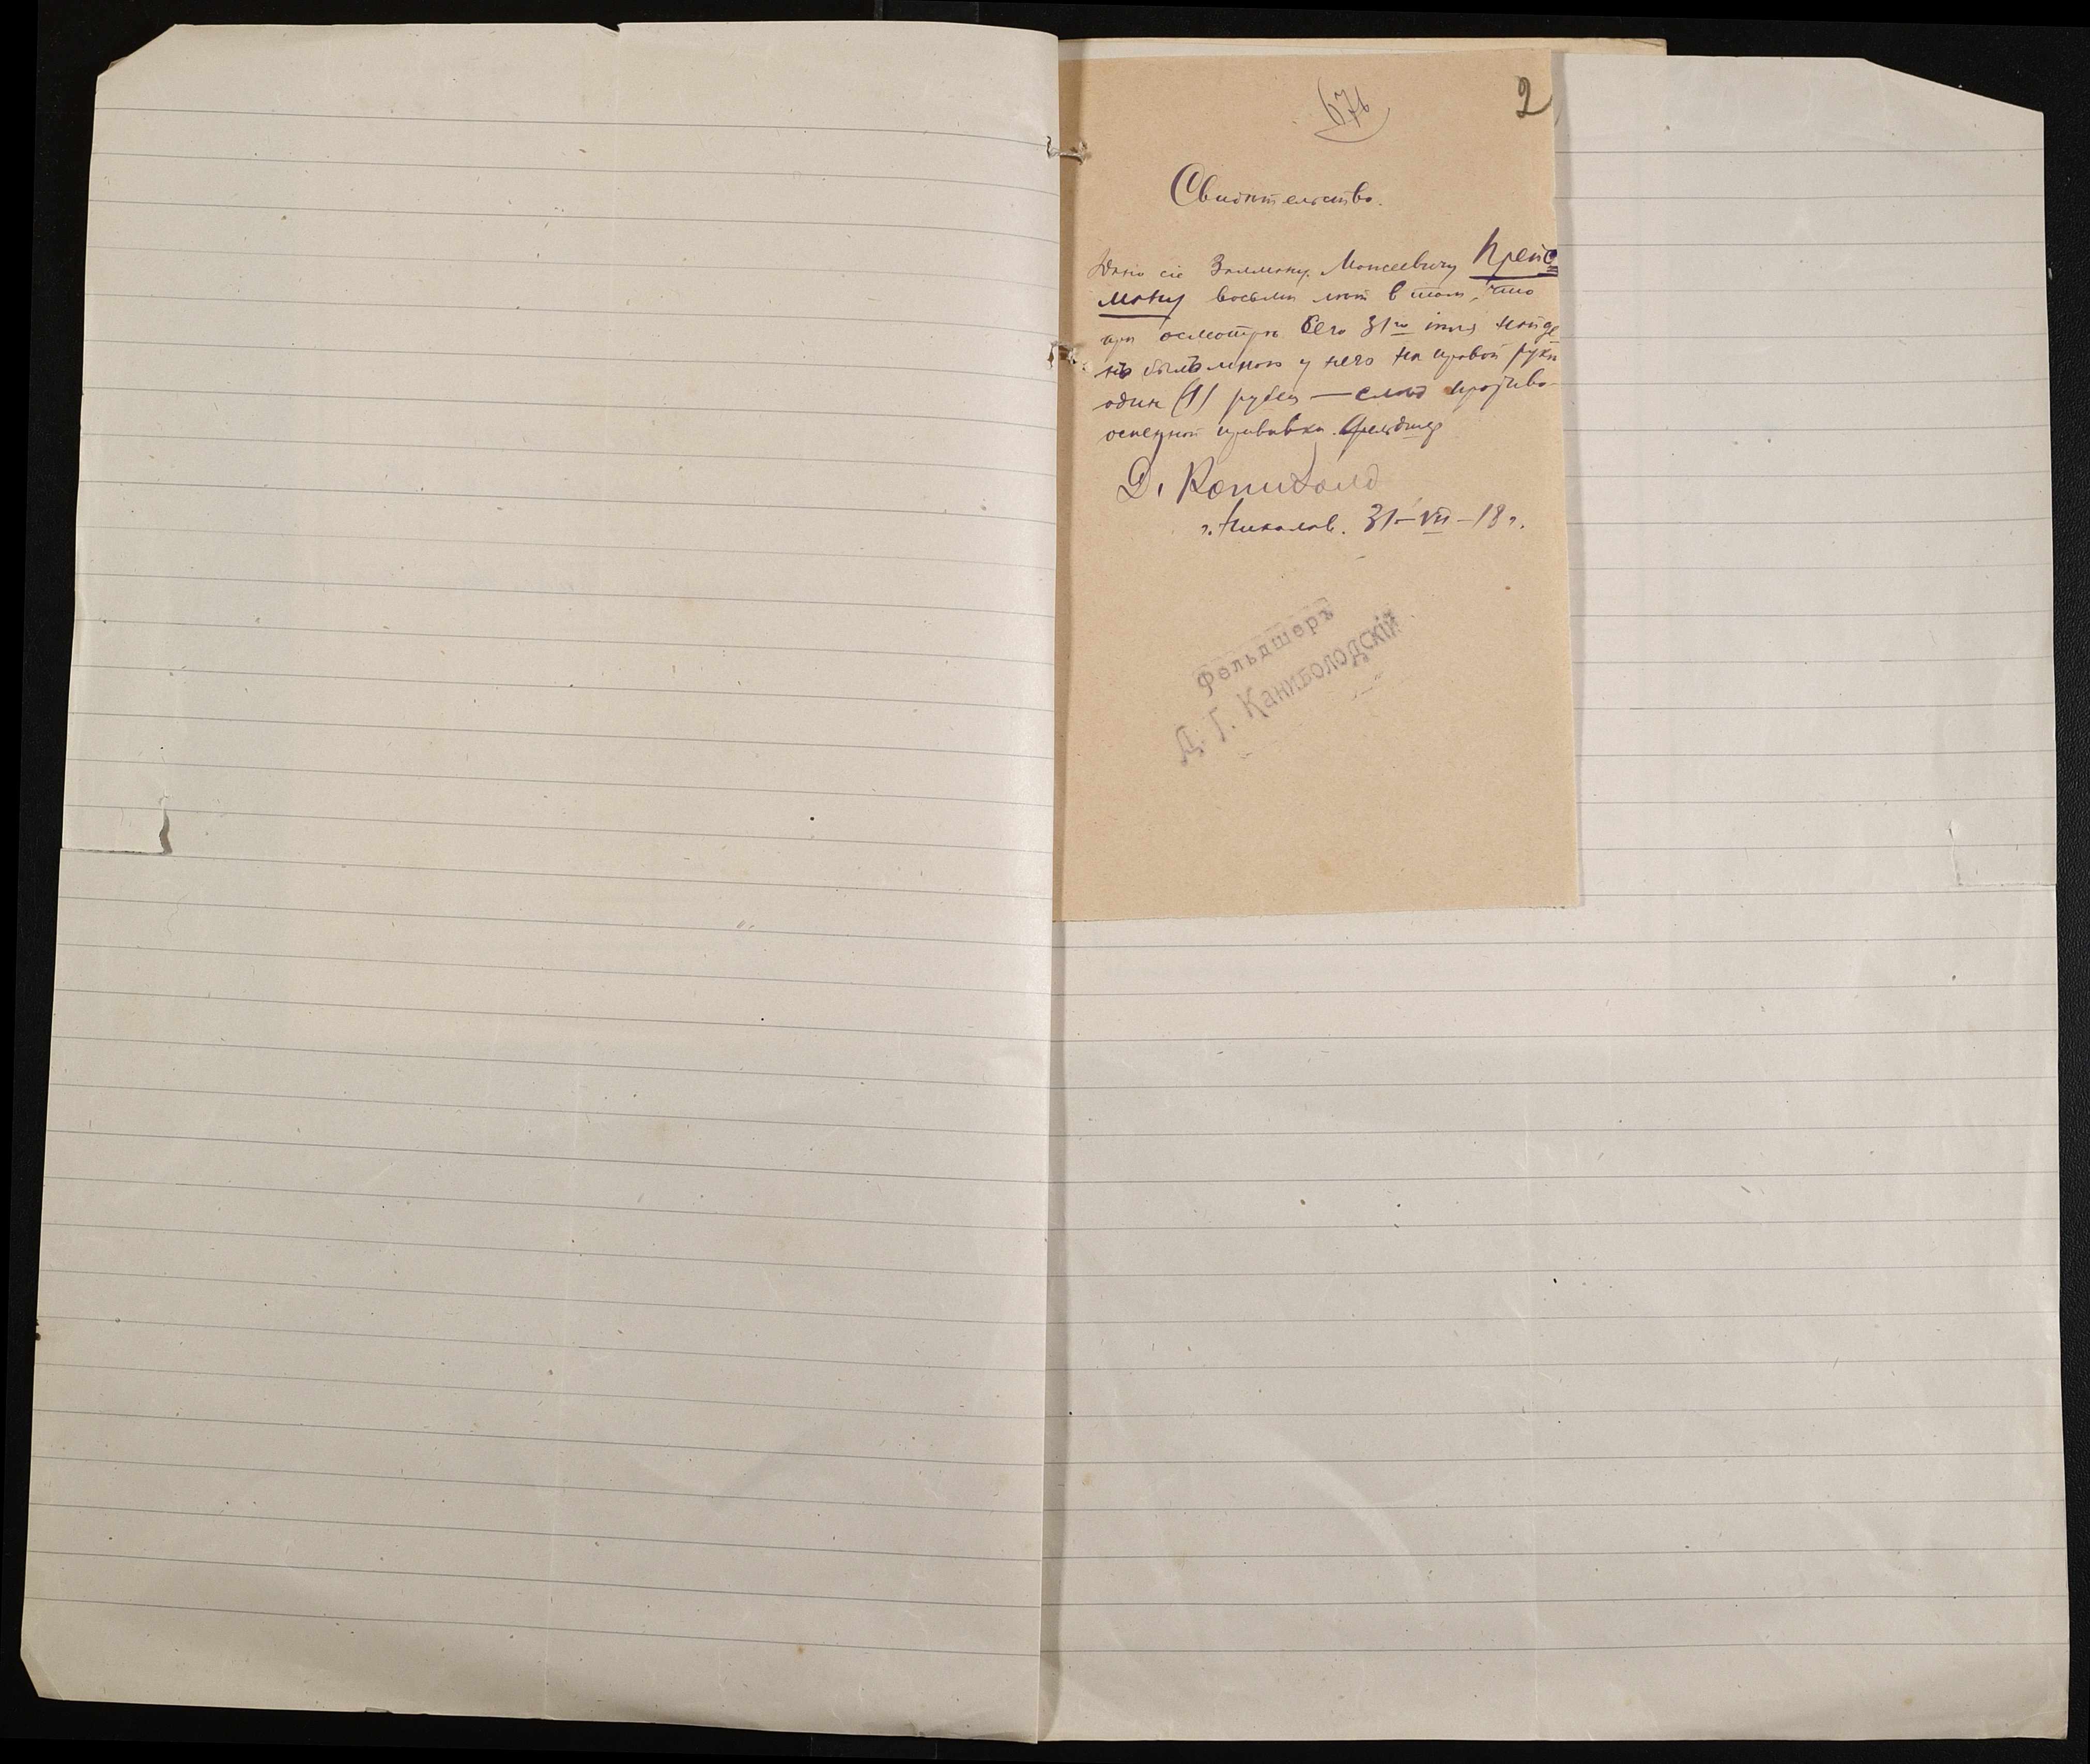 676
2
Свидѣтельство.
Дано сіе Залману Моисеевичу Крейс
ману восьми лѣт в том, что
при осмотрѣ его 31го іюля найде
нъ былъ мною у него на правой рукѣ
один (1) рубец — слѣд противо-
оспенной прививки. Фельдшер
Д.
г. Николаев. 31-VII-18 г.
Фельдшеръ
Д. Г. Каниболодскій